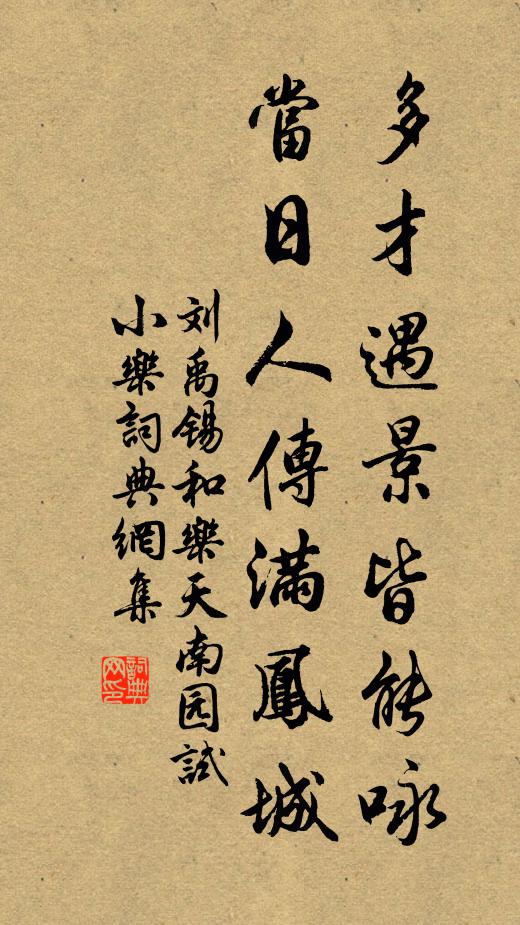 多才遇景皆能咏
當日人傳滿鳳城
刘禹锡和樂天南园試
小樂詞典網集
詞典网印